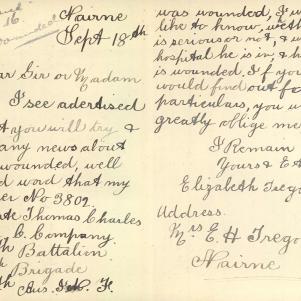 Nairne
Sept 18th
ar Sir or Madam
I see adertised
t you will try &
any news about
wounded, well
d word that my
er No 3807.
te Thomas Charles
C. Company.
th Battalion
th Brigade
Aus. I. F.
was wounded, I w
like to know, wethe
is serious or not, & w
hospital he is in, & h
is wounded. I f you
would find out fo
particulars, you w
greatly oblige me
I Remain
Yours & E
Elizabeth Treg
Address.
Mrs E. H Trego
Nairne